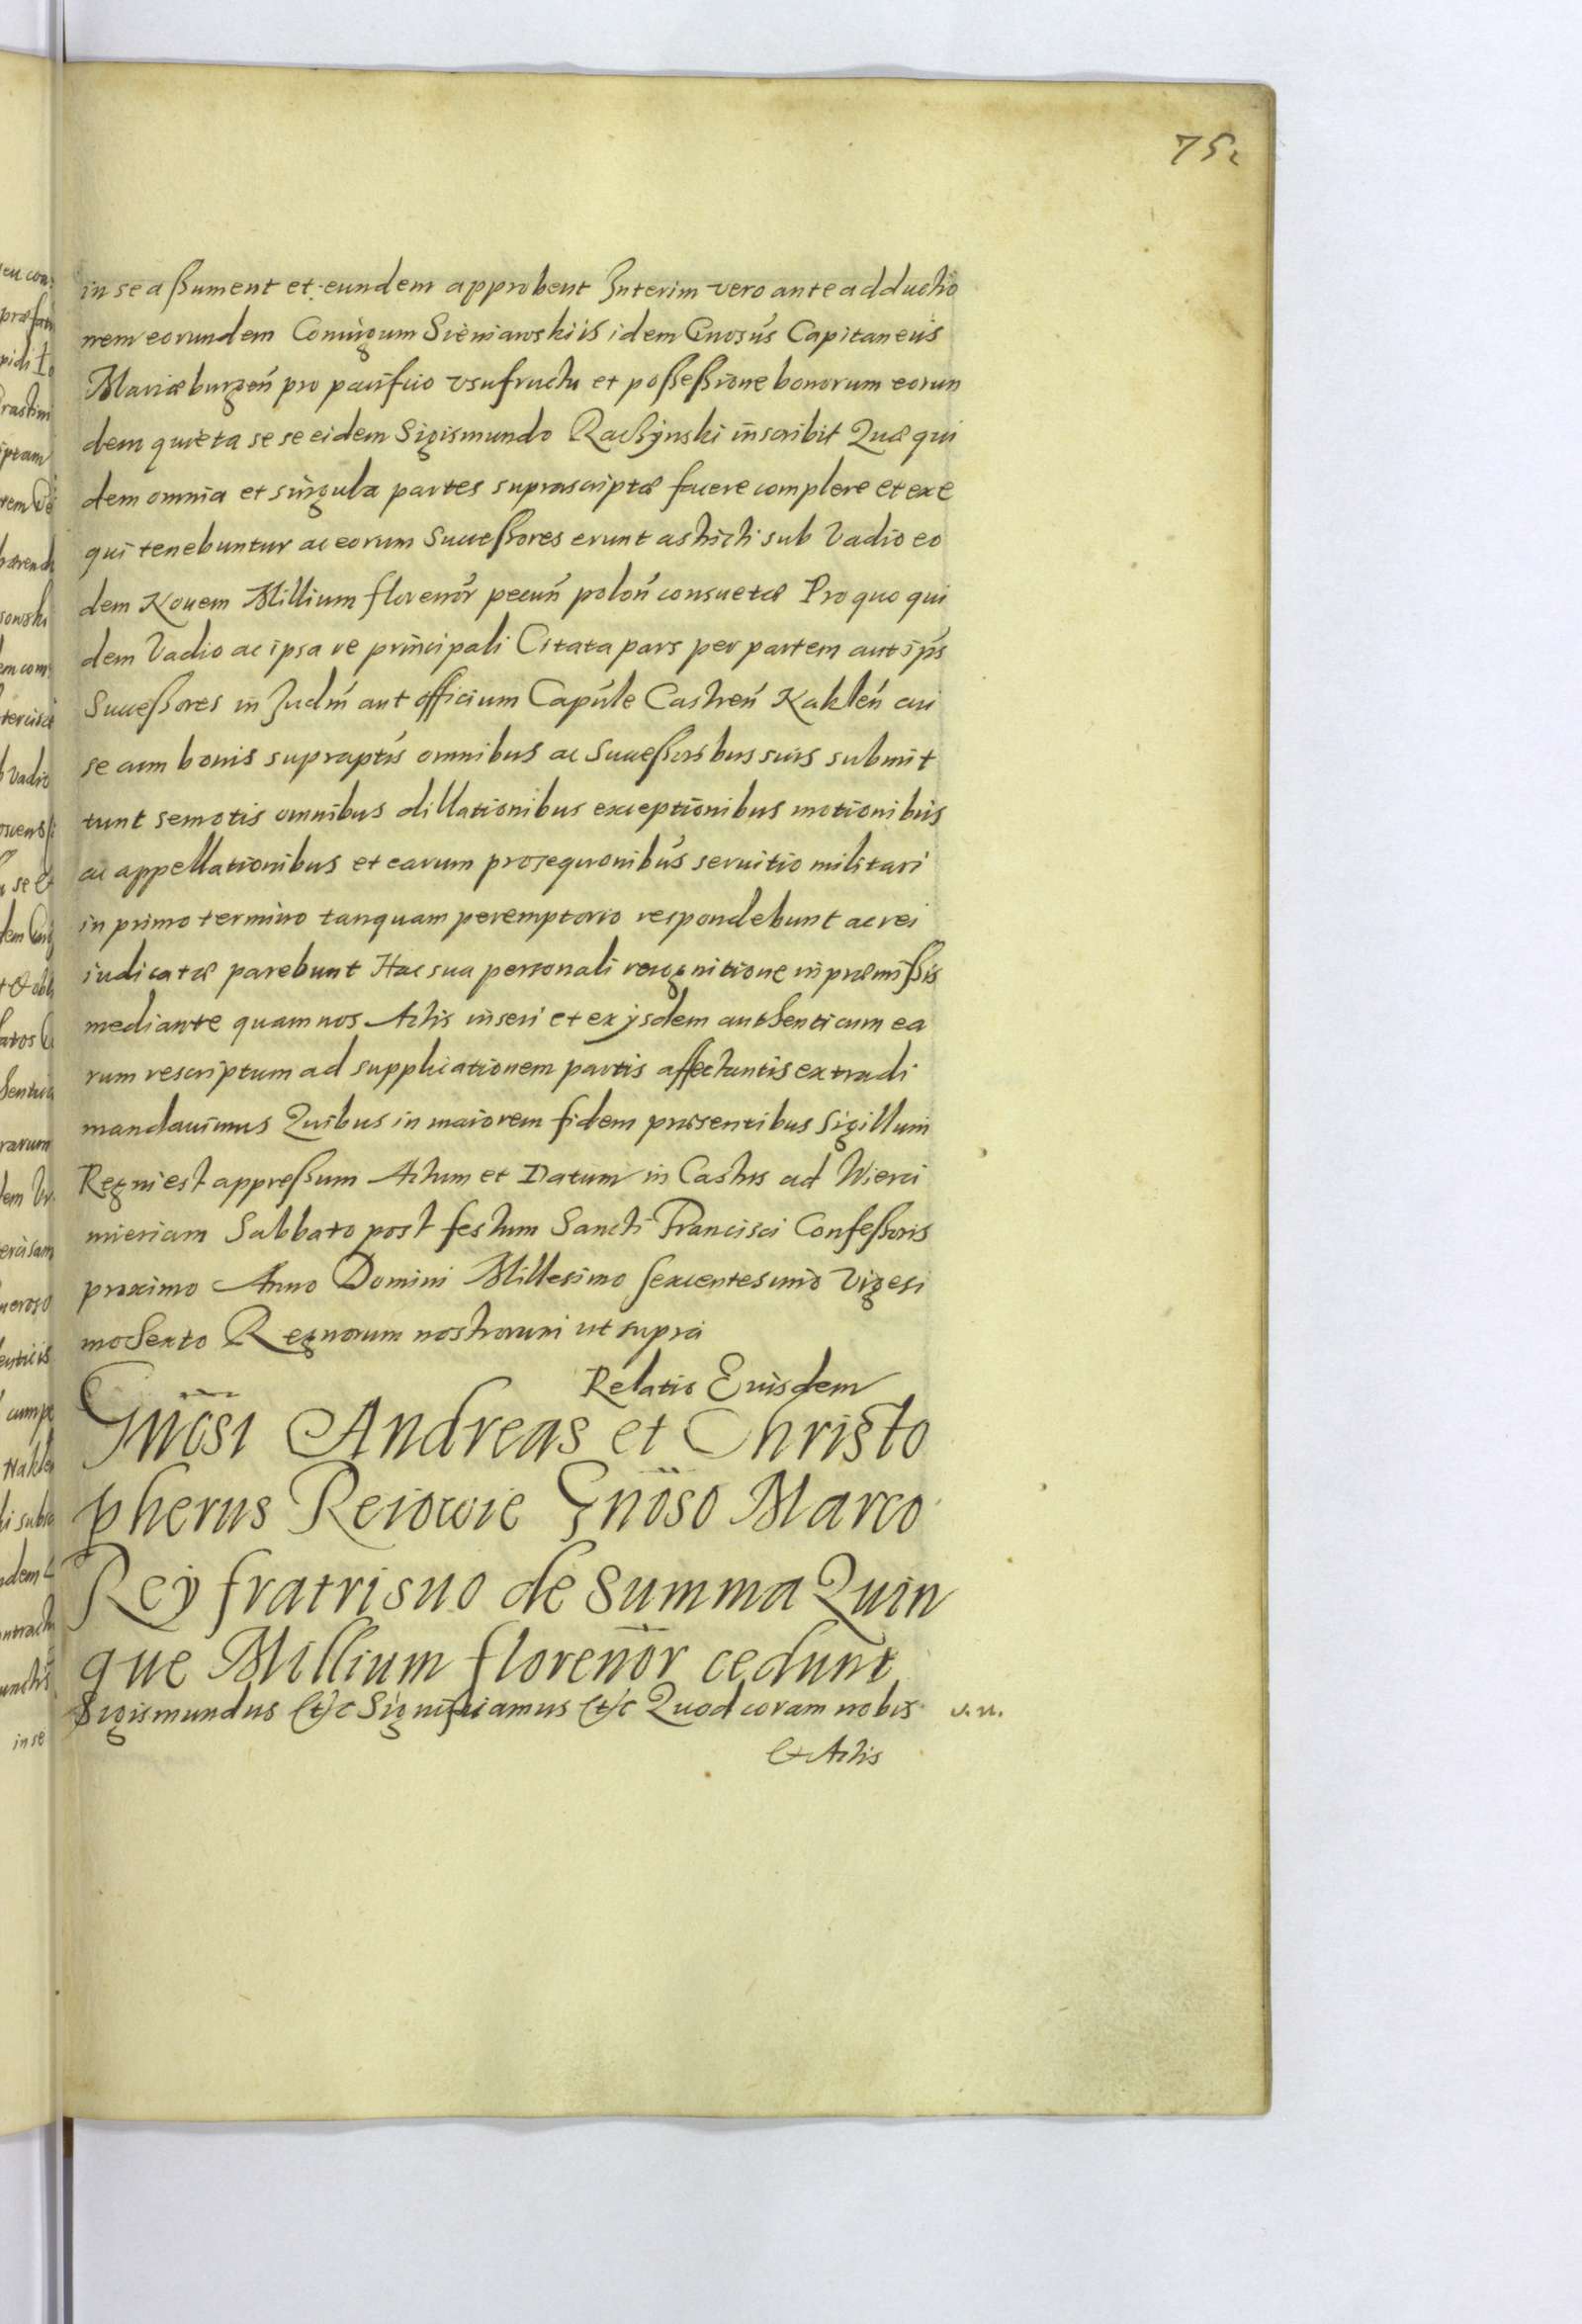 75
in se aßument et eundem approbent Interim vero ante adductio
nem eorundem Coniugum Sieniawskiis idem Gnosus Capitaneus
Mariæburgen pro pacifico vsufructu et poßeßione bonorum eorun
dem quieta se se eidem Sigismundo Raczÿnski inscribit Quæ qui
dem omnia et singula partes suprascriptæ facere complere et exe
qui tenebuntur ac eorum Succeßores erunt astricti sub Vadio eo
dem Novem Millium florenor pecun polon consuetæ Pro quo qui
dem Vadio ac ipsa re principali Citata pars per partem aut ips
Succeßores in Judm aut officium Capnle Castren Naklen cui
se cum bonis supraptis omnibus ac Succeßoribus suis submit
tunt semotis omnibus dillationibus exceptionibus motionibus
ac appellationibus et earum prosequonibus seruitio militari
in primo termino tanquam peremptorio respondebunt ac rei
iudicatæ parebunt Hac sua personali recognitione in præmißis
mediante quam nos Actis inseri et ex ÿsdem authenticum ea
rum rescriptum ad supplicationem partis affectantis extradi
mandauimus Quibus in maiorem fidem præsentibus Sigillum
Regni est appreßum Actum et Datum in Castris ad Wierci
mieriam Sabbato post festum Sancti Francisci Confeßoris
proximo Anno Domini Millesimo sexcentesimo Vigesi
mo Sexto Regnorum nostrorum ut supra
Relatio Eiusdem
Gnosi Andreas et Christo
pherus Reiowie Gnoso Marco
Reÿ fratri suo de Summa Quin
que Millium florenor cedunt
Sigismundus &c Significamus &c Quod coram nobis
et Actis